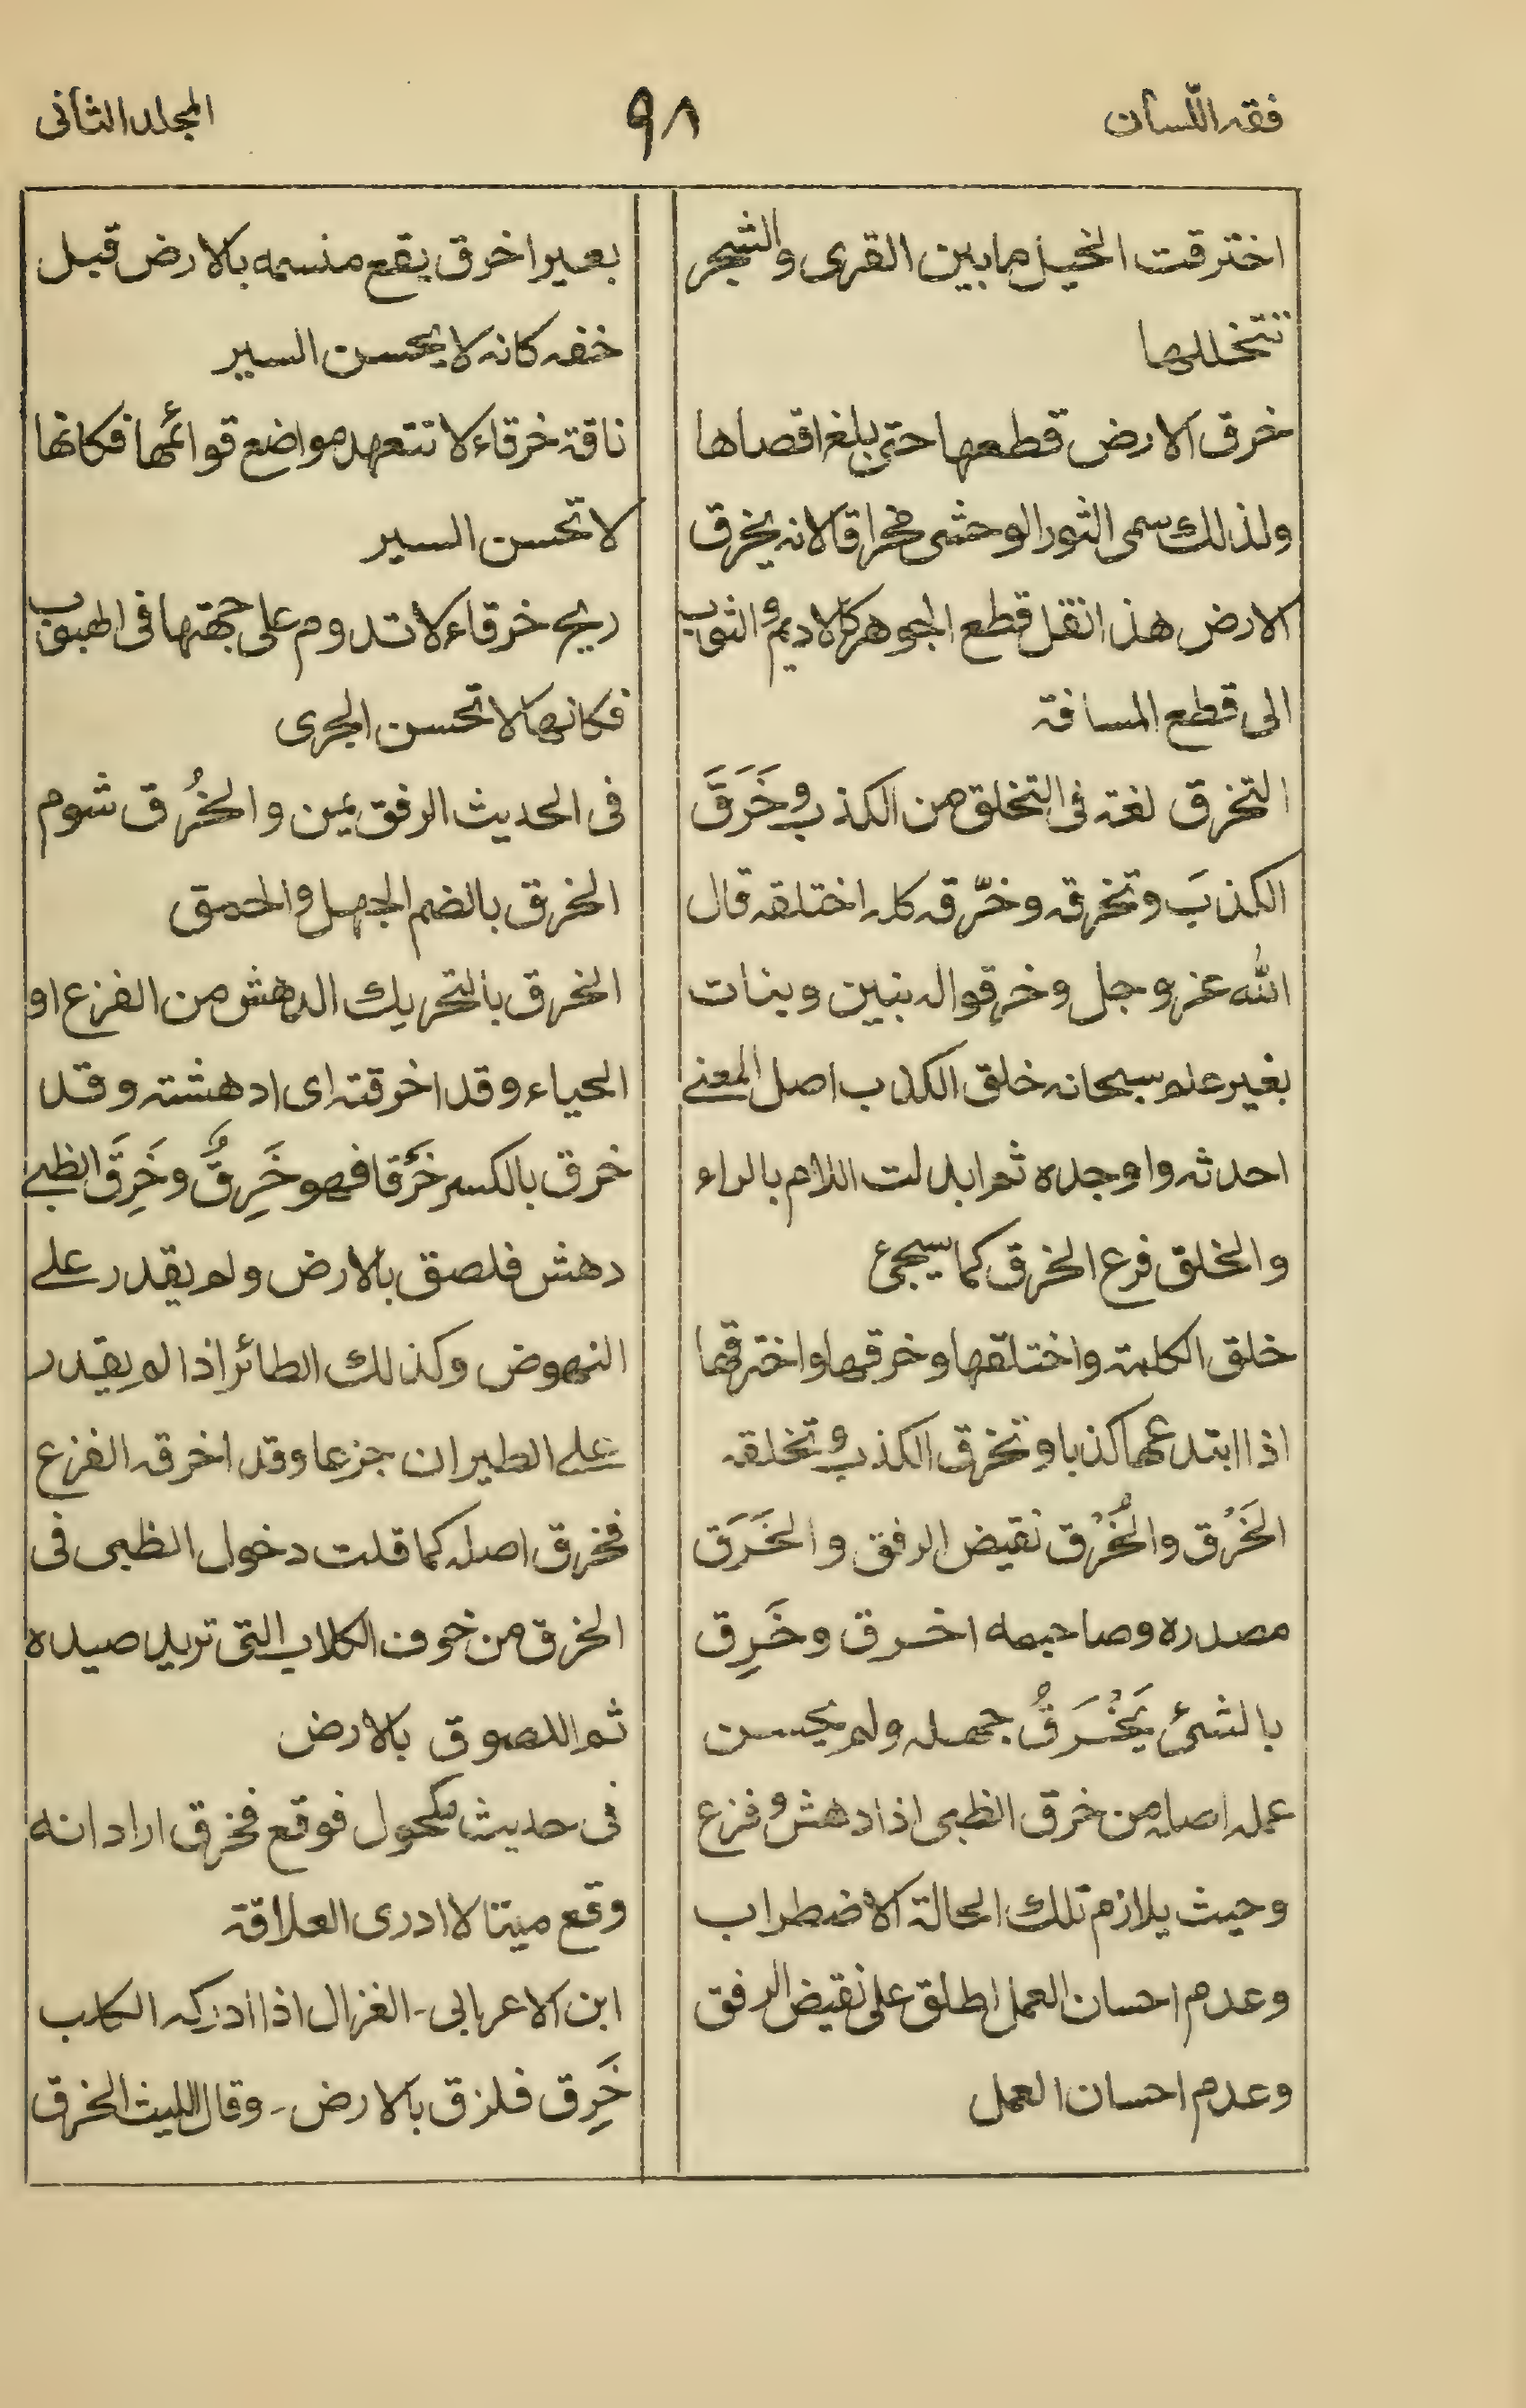 فقه اللّسان
٩٨
المجلد الثانى
اخترقت الخيل ما بين القرى والشجر
تتخللها
خرق الارض قطعها حتى بلغ اقصاها
ولذلك سمى الثور الوحشى مخراقا لانه يخرق
الارض هذا انقل قطع الجوهر كالاديم والثوب
الى قطع المسافة
التخرق لغة فى التخلق من الكذب وخَرَقَ
الكذبَ وتخرقه وخرّقه كله اختلقه قال
الله عز وجل وخرقوا له بنين وبنات
بغير علم سبحانه خلق الكذب اصل المعنے
احدثه واوجده ثم ابدلت اللام بالراء
والخلق فرع الخرق كما سيجئ
خلق الكلمة واختلقها وخرقها واخترقها
اذا ابتدعها كذبا وتخرق الكذب وتخلقه
الخَرْق والخُرْق نقيض الرفق والخَرَق
مصدره وصاحبه اخرق وخَرِق
بالشئ يَخْرَقُ جهله ولم يحسن
عمله اصله من خرق الظبى اذا دهش وفزع
وحيث يلازم تلك الحالة الاضطراب
وعدم احسان العمل اطلق على نقيض الرفق
وعدم احسان العمل
بعير اخرق يقع منسمه بالارض قبل
خفه كانه لا يحسن السير
ناقة خرقاء لا تتعهد مواضع قوائمها فكانها
لا تحسن السير
ريح خرقاء لا تدوم على جهتها فى الهبوب
فكانها لا تحسن الجرى
فى الحديث الرفق يمن والخُرق شوم
الخرق بالضم الجهل والحمق
الخرق بالتحريك الدهش من الفزع او
الحياء وقد اخرقته اى ادهشته وقد
خرق بالكسر خَرَقا فهو خَرِقٌ وخَرِقَ الظبے
دهش فلصق بالارض ولم يقدر علے
النهوض وكذلك الطائر اذا لم يقدر
علے الطيران جزعا وقد اخرقه الفزع
فخرق اصله كما قلت دخول الظبى فى
الخرق من خوف الكلاب التى تريد صيده
ثم اللصوق بالارض
فى حديث مكحول فوقع فخرق اراد انه
وقع ميتا لا ادرى العلاقة
ابن الاعرابى - الغزال اذا ادركه الكلب
خَرِق فلزق بالارض - وقال الليث الخرق